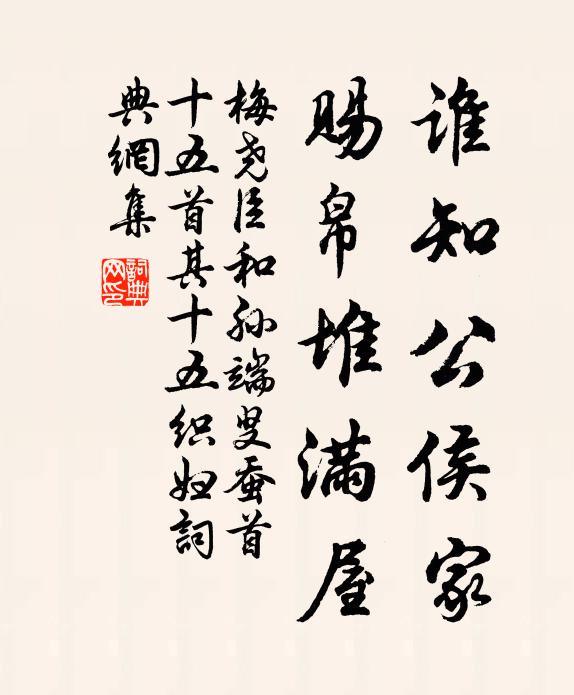 誰知公侯家
賜帛堆滿屋
梅尧臣和孙端叟蚕首
十五首其十五织妇詞
典網集
詞典網印